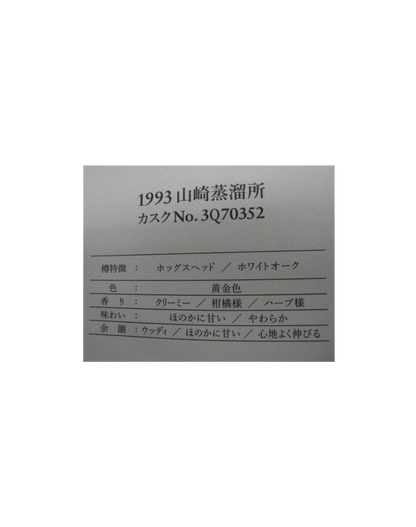 1993 山崎蒸溜所
カスク No. 3Q70352
樽特徴 : ホッグスヘッド / ホワイトオーク
色 : 黄金色
香り : クリーミー / 柑橘様 / ハーブ様
味わい : ほのかに甘い / やわらか
余韻 : ウッディ / ほのかに甘い / 心地よく伸びる